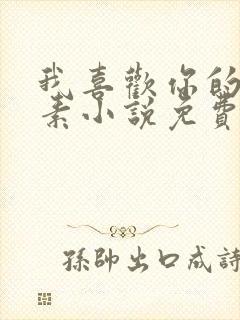 我喜歡你的
素小說免費
孫帥出口成詩